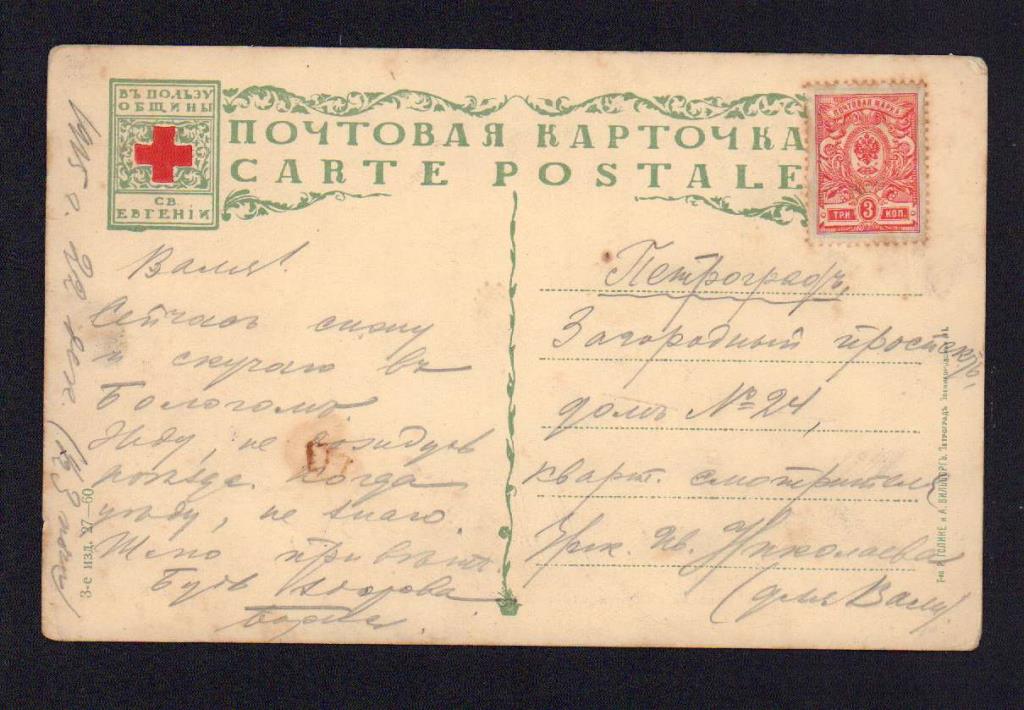 ВЪ ПОЛЬЗУ
ОБЩИНЫ
СВ.
ЕВГЕНІИ
ПОЧТОВАЯ КАРТОЧКА
CARTE POSTALE
ПОЧТОВАЯ МАРКА
ТРИ 3 КОП.
1915 г. 22 дек.
Валя!
Сейчасъ сижу
и скучаю въ
Бологомъ.
Жду, не дождусь
поѣзда. Когда
уѣду, не знаю.
Шлю привѣтъ
Будь здорова
Петроградъ,
Загородный проспектъ,
домъ № 24,
кварт. смотрителя
Николаева
(для Вали)
3-е изд. 27—60
Р. ГОЛИКЕ и А. ВИЛЬБОРГЪ. ПЕТРОГРАДЪ